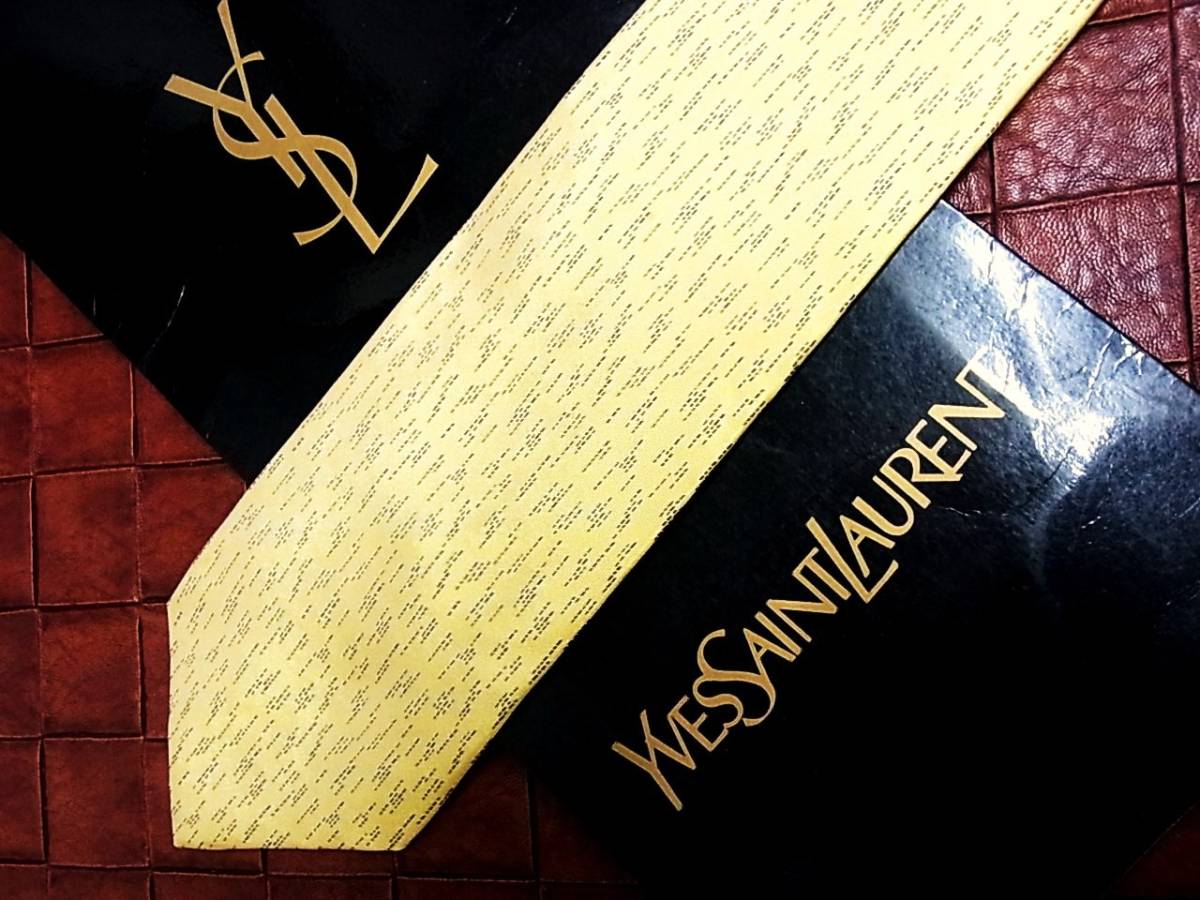 YSL
YVESSAINTLAURENT